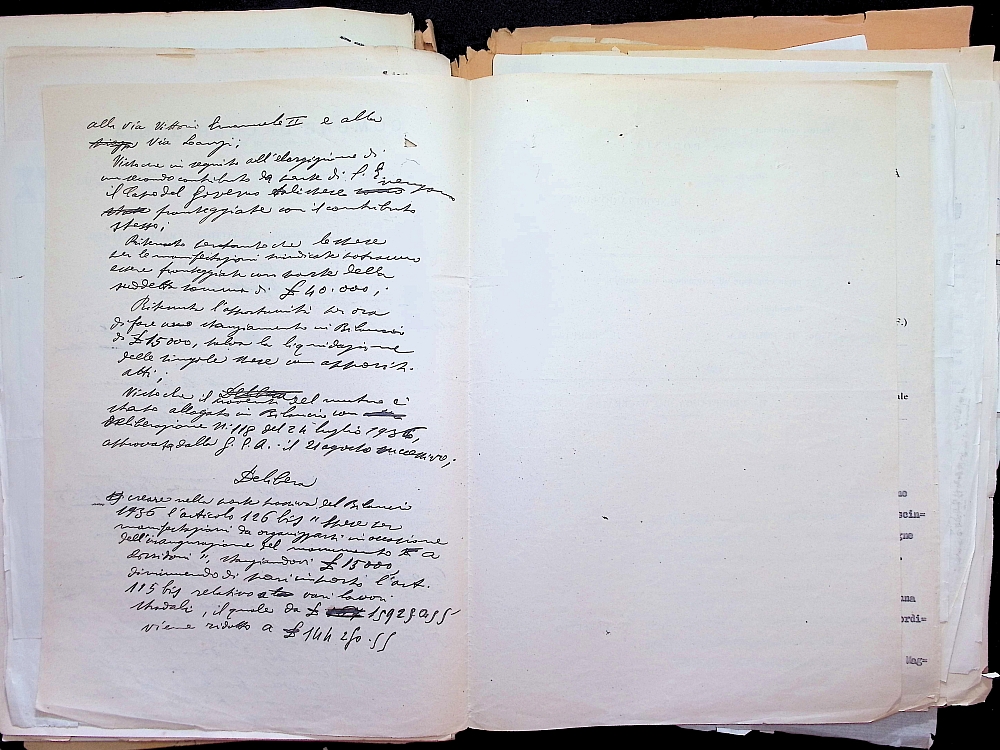 alla Via Vittorio Emanuele II e alla
Via Longi;
Visto che in seguito all'elargizione di
un secondo contributo da parte di S. E.
il Capo del Governo tali spese vengono
fronteggiate con il contributo
stesso;
Ritenuto pertanto che le spese
per le manifestazioni suindicate potranno
essere fronteggiate con parte della
suddetta somma di £ 40.000;
Ritenuta l'opportunità per ora
di fare uno stanziamento in Bilancio
di £ 15000, salva la liquidazione
delle singole spese con appositi
atti;
Visto che il del mutuo è
stato allogato in Bilancio con
deliberazione N. 118 del 24 luglio 1936,
approvata dalla G. P. A. il 21 agosto successivo;
Delibera
creare nella parte passiva del Bilancio
1936 l'articolo 126 bis "Spese per
manifestazioni da organizzarsi in occasione
dell'inaugurazione del monumento a
", stanziandovi £ 15000,
diminuendo di pari importo l'art.
115 bis relativo a vari lavori
stradali, il quale da £ 159250.55
viene ridotto a £ 144250.55
F.)
ale
no
scin=
gno
una
ordi=
Mag=